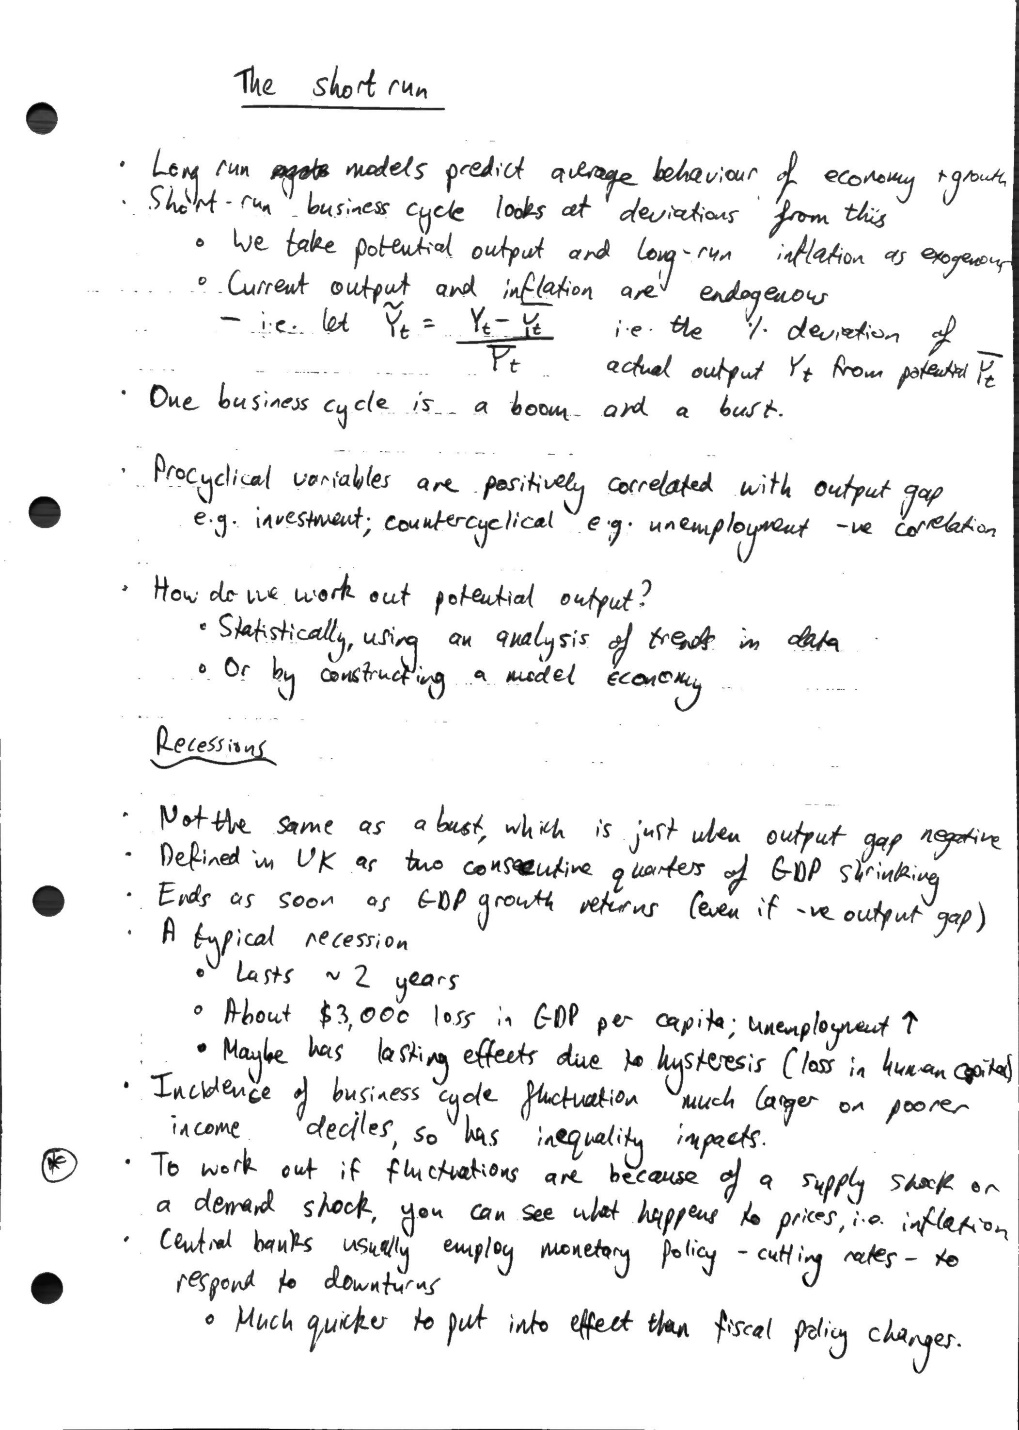 The short run
· Long run models predict average behaviour of economy + growth
· Short-run business cycle looks at deviations from this
∘ We take potential output and long-run inflation as exogenous
∘ Current output and inflation are endogenous
- i.e. let Ỹt = (Yt - Ȳt) / Ȳt i.e. the % deviation of
actual output Yt from potential Ȳt
· One business cycle is a boom and a bust.
· Procyclical variables are positively correlated with output gap
e.g. investment; countercyclical e.g. unemployment -ve correlation
· How do we work out potential output?
∘ Statistically, using an analysis of trends in data
∘ Or by constructing a model economy
Recessions
· Not the same as a bust, which is just when output gap negative
· Defined in UK as two consecutive quarters of GDP shrinking
· Ends as soon as GDP growth returns (even if -ve output gap)
· A typical recession
∘ Lasts ~ 2 years
∘ About $3,000 loss in GDP per capita; unemployment ↑
∘ Maybe has lasting effects due to hysteresis (loss in human capital)
· Incidence of business cycle fluctuation much larger on poorer
income deciles, so has inequality impacts.
* · To work out if fluctuations are because of a supply shock or
a demand shock, you can see what happens to prices, i.e. inflation
· Central banks usually employ monetary policy - cutting rates - to
respond to downturns
∘ Much quicker to put into effect than fiscal policy changes.